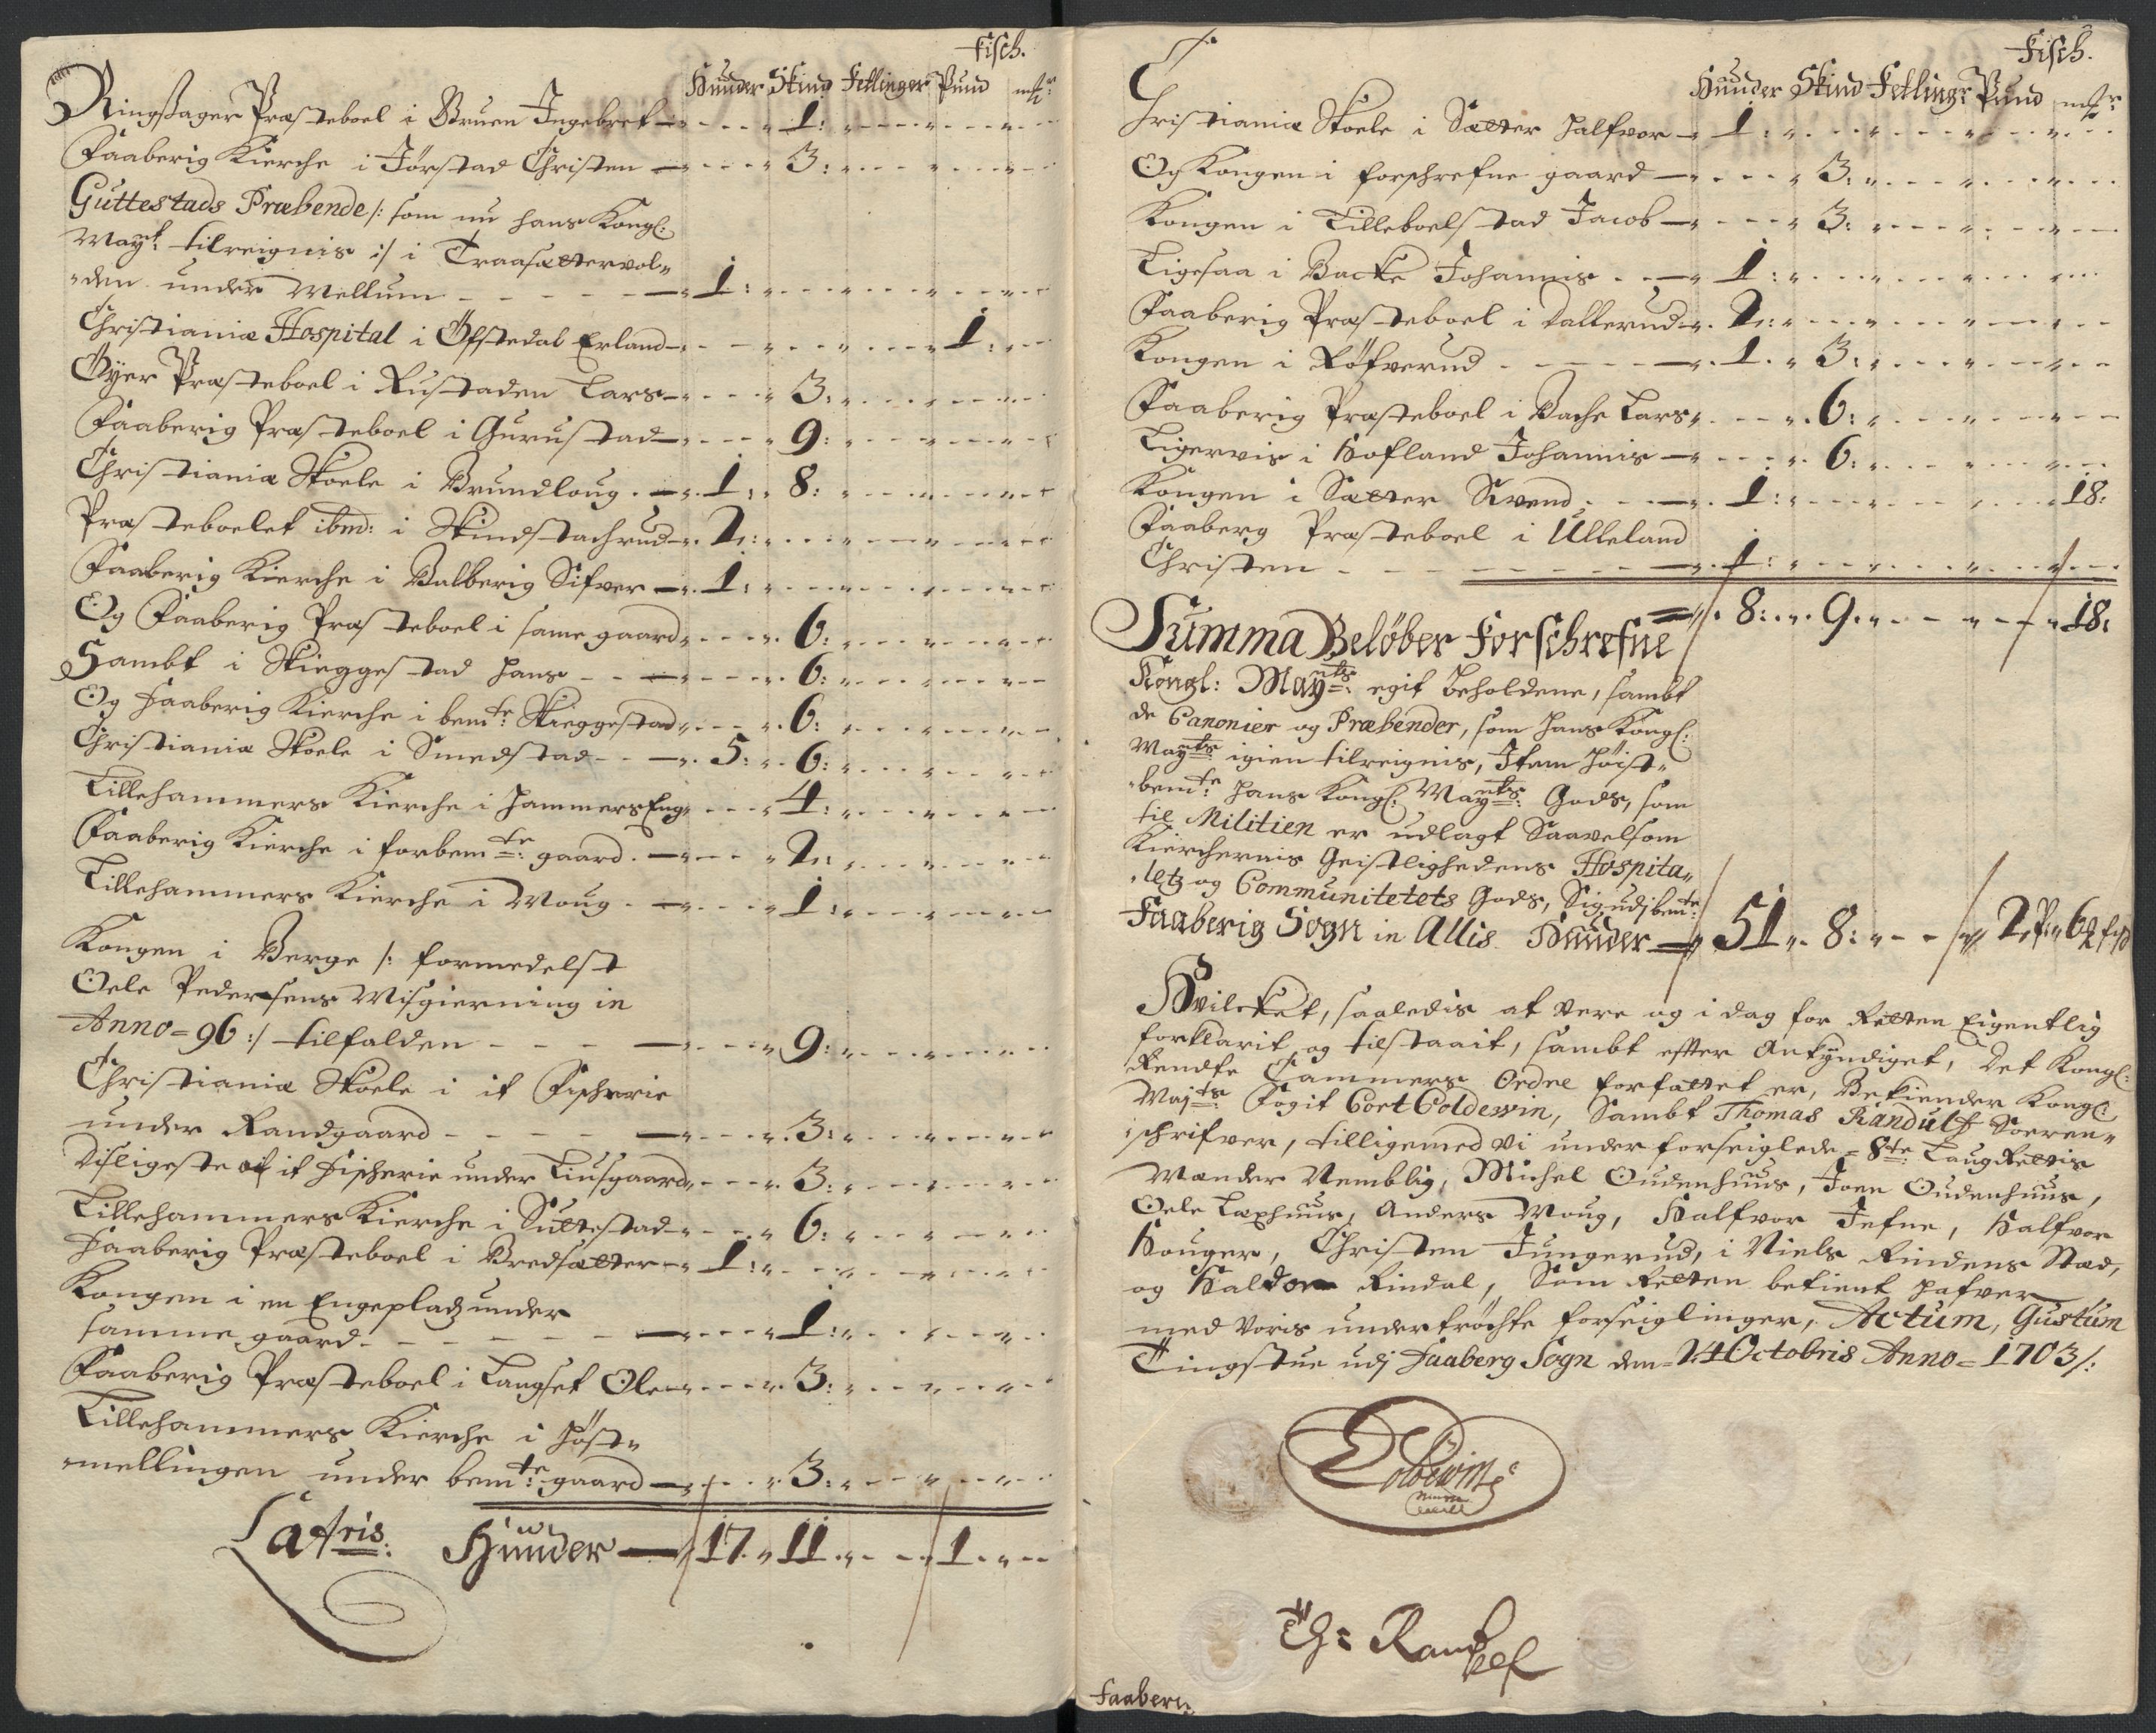 Fisch.
Hunder Skind Fetlinger Pund mkr
Ringsager Præsteboel i Bruen Ingebret — 1:
Faaberig Kierche i Jörstad Christen — 3:
Guttestads Præbende /: som nu hans Kongl:
Mayt. tilreignis :/ i Traasættervol„
„den under Mellum — 1:
Christianiæ Hospital i Öfstedal Erland — 1.
Öyer Præsteboel i Rustaden Lars — 3.
Faaberig Præsteboel i Gurustad — 9:
Christianiæ Skoele i Brundloug — 1: 8:
Præsteboelet ibm: i Skindstachrud — 2:
Faaberig Kierche i Balberig Sifver — 1:
Og Faaberig Præsteboel i same gaard — 6:
Sambt i Skieggestad Hans — 6:
Og Faaberig Kierche i bemte: Skieggestad — 6:
Christianiæ Skoele i Smedstad — 5: 6:
Lillehammers Kierche i Hammers Eng — 4:
Faaberig Kierche i forbemte: gaard — 2:
Lillehammers Kierche i Moug — 1:
Kongen i Berge /: formedelst
Oele Pedersens Misgierning in
Anno = 96 :/ tilfalden — 9:
Christianiæ Skoele i it Fischerie
under Randgaard — 3:
Disligeste it Fischerie under Liusgaard — 3:
Lillehammers Kierche i Suttestad — 6:
Faaberig Præsteboel i Bredsætter — 1:
Kongen i en Engeplads under
samme gaard — 1:
Faaberig Præsteboel i Langset Ole — 3:
Lillehammers Kierche i Höst„
„mellingen under bemte: gaard — 3:
Latris: Hunder — 17 „ 11 „ 1
Fisch.
Hunder Skind Fetlingr Pund mkr
Christianiæ Skoele i Sætter Halfvor — 1:
Og Kongen i forschrefne gaard — 3:
Kongen i Lilleboelstad Jacob — 3:
Ligesaa i Backe Johannis — 1:
Faaberig Præsteboel i Dallerud — 2:
Kongen i Röfverud — 1. 3:
Faaberig Præsteboel i Bache Lars — 6:
Ligervis i Hofland Johannis — 6:
Kongen i Sætter Svend — 1: 18:
Faaberg Præsteboel i Ulleland
Christen — 1:
8: 9. 18:
Summa Beløber Forschrefne
Kongl: Mayts: egit Beholdene, sambt
de Canonier og Præbender, som Hans Kongl:
Mayts igien tilreignis, Item Höist„
„bemte: Hans Kongl: Mayts: Gods, som
til Militien er udlagt Saavelsom
Kierchernis Geistlighedens Hospita„
„letz og Communitetets Gods, Sig udj bemte:
Faaberig Sogn in Allis Hunder — 51 „ 8: 2 P: 6
Hvilcket, saaledis at vere og i dag for Retten Eigentlig
forklarit og tilstaait, sambt effter Ankyndiget, Det Kongl:
Rendte Cammers Ordre forfattet er, Bekiender Kongl:
Majts: Fogit Cort Coldewin, Sambt Thomas Randulf Soeren„
„schrifver, tilligemed vi under forseiglede = 8te: Laug Rettis
Mænder Nemblig, Michel Oudenhuus, Joen Oudenhuus,
Oele Laxhuus, Anders Moug, Halfvor Jefne, Halfvor
Houger, Christen Jungerud, i Niels Rindens Sted,
og Haldor Rindal, Som Retten betient hafver
med voris undertröchte forseiglinger, Actum, Gustum
Tingstue udj Faaberg Sogn den = 24 Octobris Anno = 1703 /:
Coldewin
Th: Randulf
Faaberg